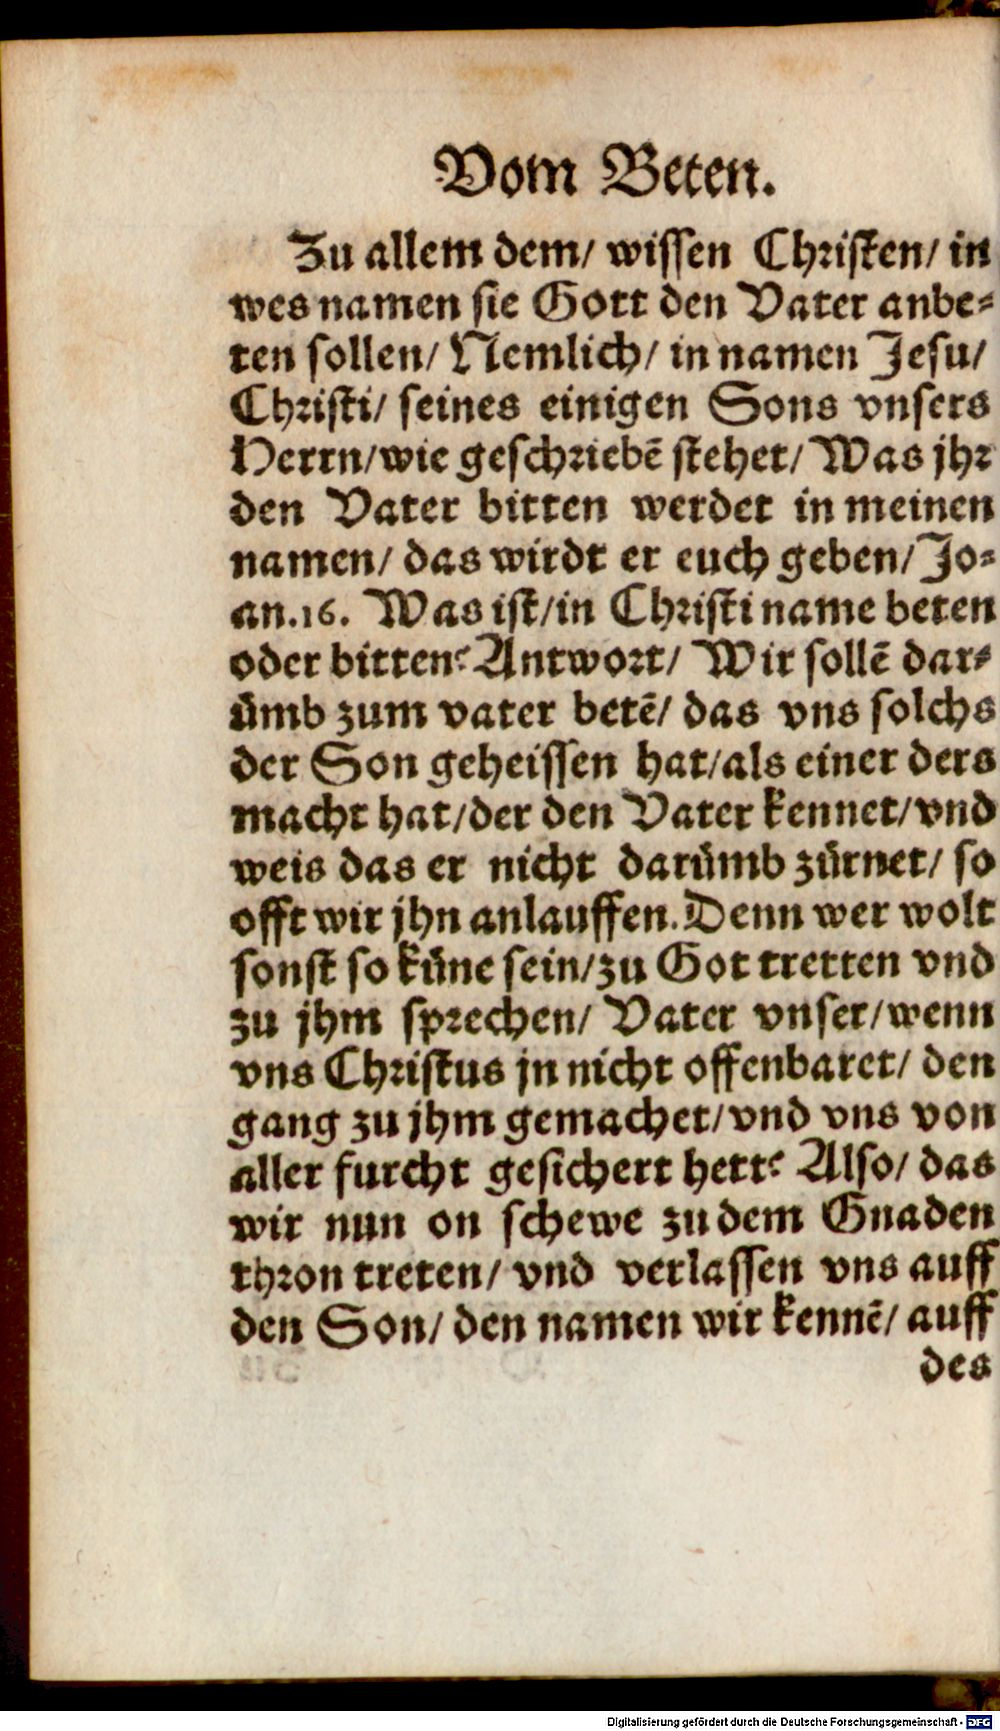 Vom Beten.
Zu allem dem/ wissen Christen/ in
wes namen sie Gott den Vater anbe⸗
ten sollen/ Nemlich/ in namen Jesu/
Christi/ seines einigen Sons vnsers
Herrn/wie geschriebē stehet/ Was jhr
den Vater bitten werdet in meinen
namen/ das wirdt er euch geben/ Jo⸗
an.16. Was ist/in Christi name beten
oder bitten? Antwort/ Wir sollē dar⸗
ümb zum vater betē/ das vns solchs
der Son geheissen hat/als einer ders
macht hat/der den Vater kennet/vnd
weis das er nicht darümb zürnet/ so
offt wir jhn anlauffen. Denn wer wolt
sonst so küne sein/zu Got tretten vnd
zu jhm sprechen/ Vater vnser/wenn
vns Christus jn nicht offenbaret/ den
gang zu jhm gemachet/vnd vns von
aller furcht gesichert hett? Also/ das
wir nun on schewe zu dem Gnaden
thron treten/ vnd verlassen vns auff
den Son/ den namen wir kennē/ auff
des
Digitalisierung gefördert durch die Deutsche Forschungsgemeinschaft - DFG